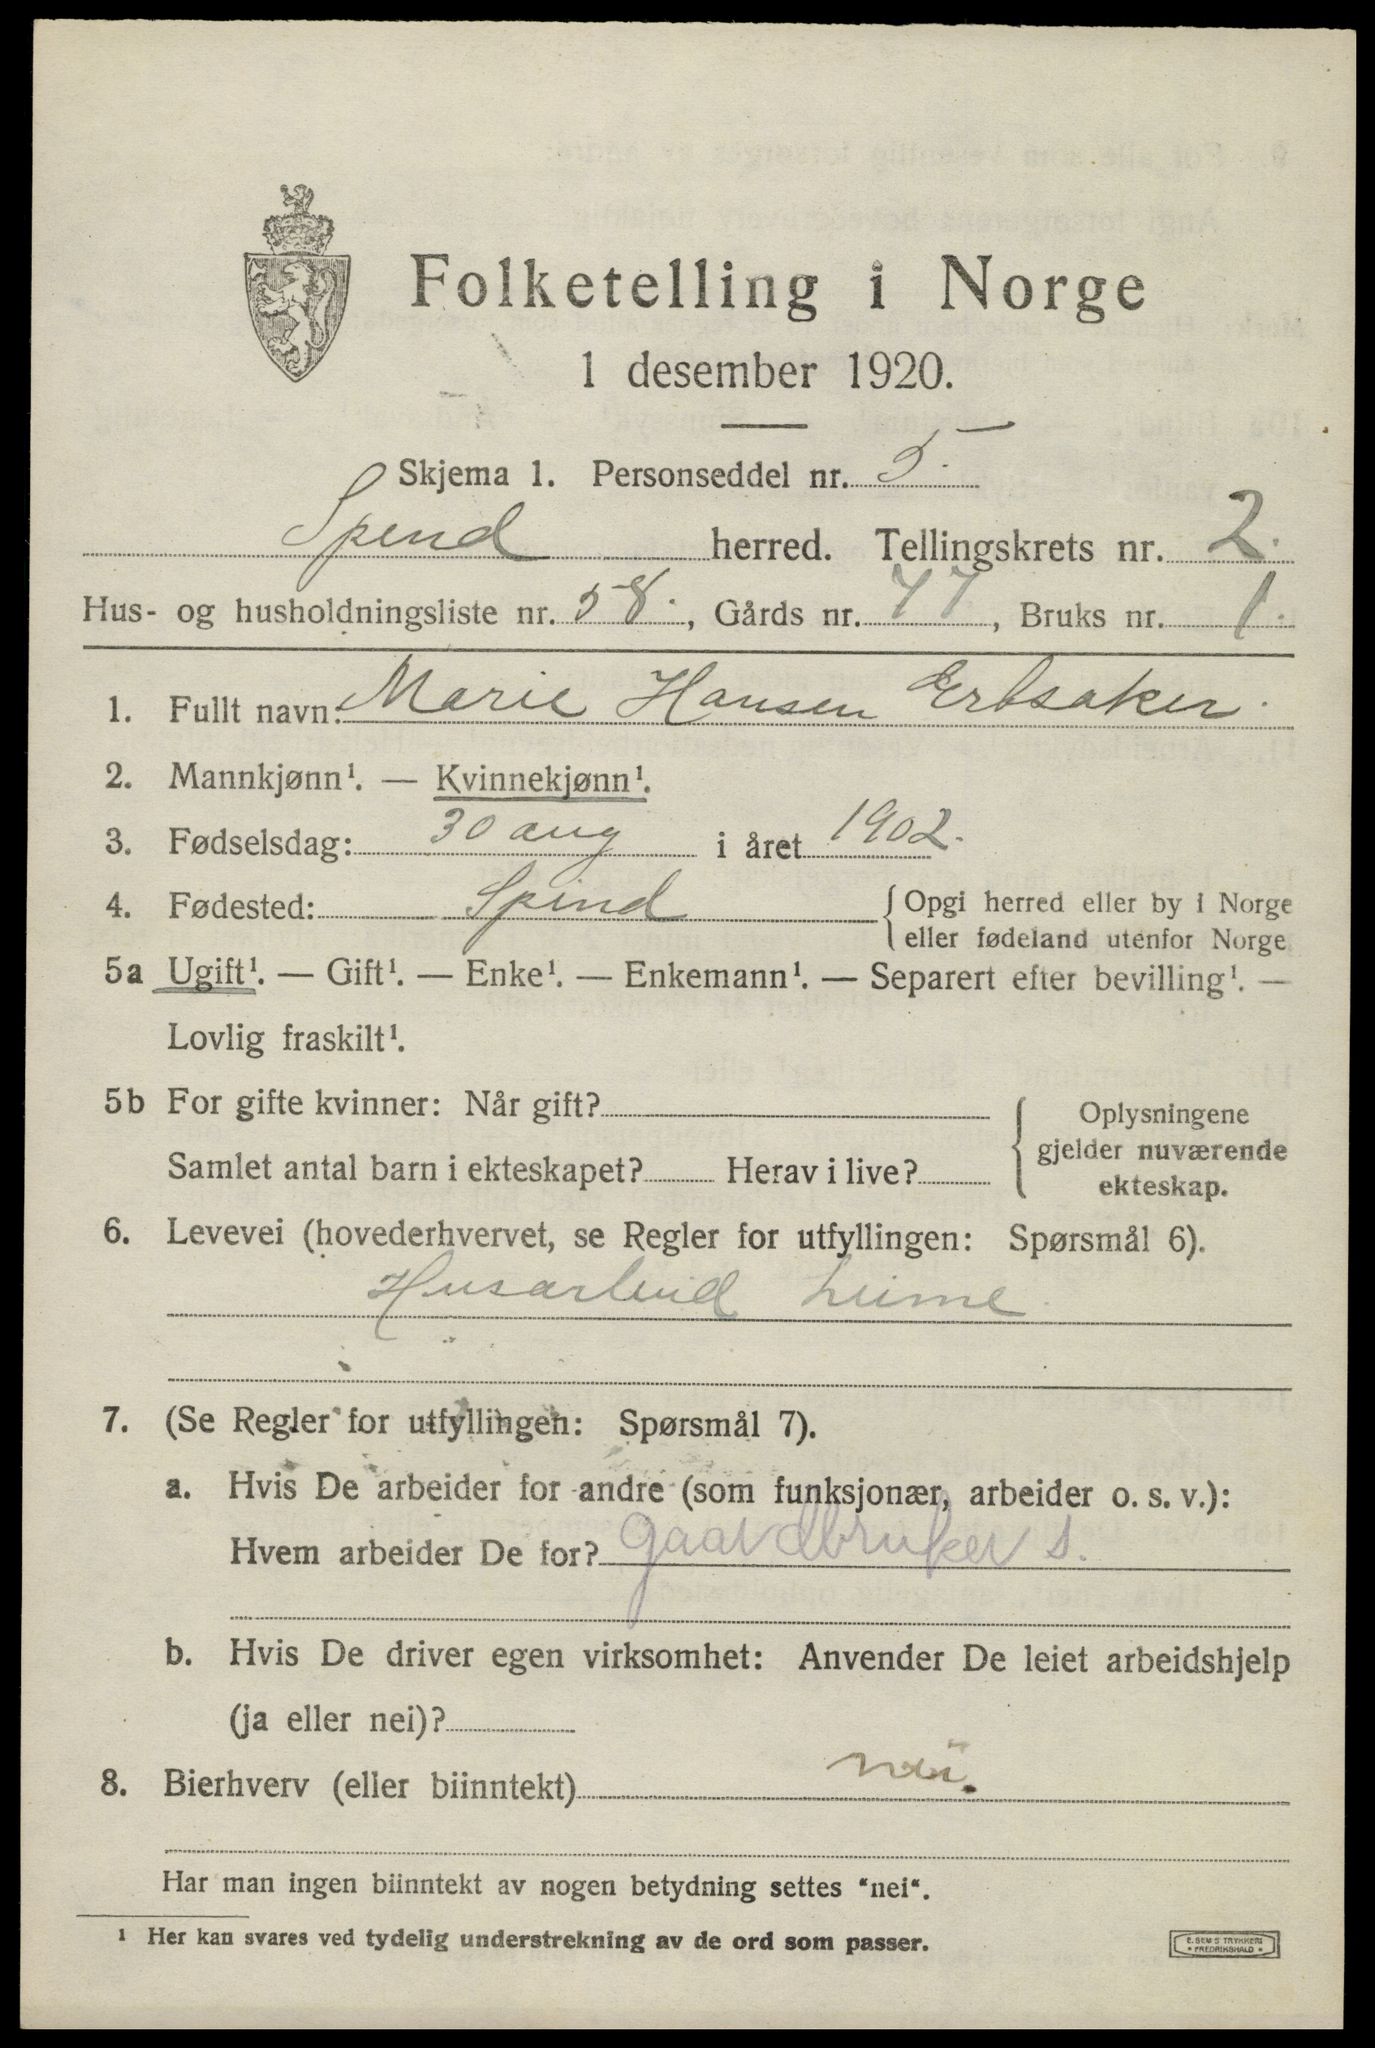 Folketelling i Norge
1 desember 1920.
Skjema 1. Personseddel nr. 5.
Spind herred. Tellingskrets nr. 2.
Hus- og husholdningsliste nr. 58., Gårds nr. 77, Bruks nr. 1.
1. Fullt navn: Marie Hansen Ertsaker.
2. Mannkjønn¹. — Kvinnekjønn¹.
3. Fødselsdag: 30 aug i året 1902.
4. Fødested: Spind {Opgi herred eller by i Norge
eller fødeland utenfor Norge
5a Ugift¹. — Gift¹. — Enke¹. — Enkemann¹. — Separert efter bevilling¹. —
Lovlig fraskilt¹.
5b For gifte kvinner: Når gift?
Samlet antal barn i ekteskapet? Herav i live?
Oplysningene
gjelder nuværende
ekteskap.
6. Levevei (hovederhvervet, se Regler for utfyllingen: Spørsmål 6).
Husarbeid heime
7. (Se Regler for utfyllingen: Spørsmål 7).
a. Hvis De arbeider for andre (som funksjonær, arbeider o. s. v.):
Hvem arbeider De for? gaardbruker s.
b. Hvis De driver egen virksomhet: Anvender De leiet arbeidshjelp
(ja eller nei)?
8. Bierhverv (eller biinntekt) nei.
Har man ingen biinntekt av nogen betydning settes "nei".
¹ Her kan svares ved tydelig understrekning av de ord som passer.
E. SEM'S TRYKKERI
* FREDRIKSHALD *